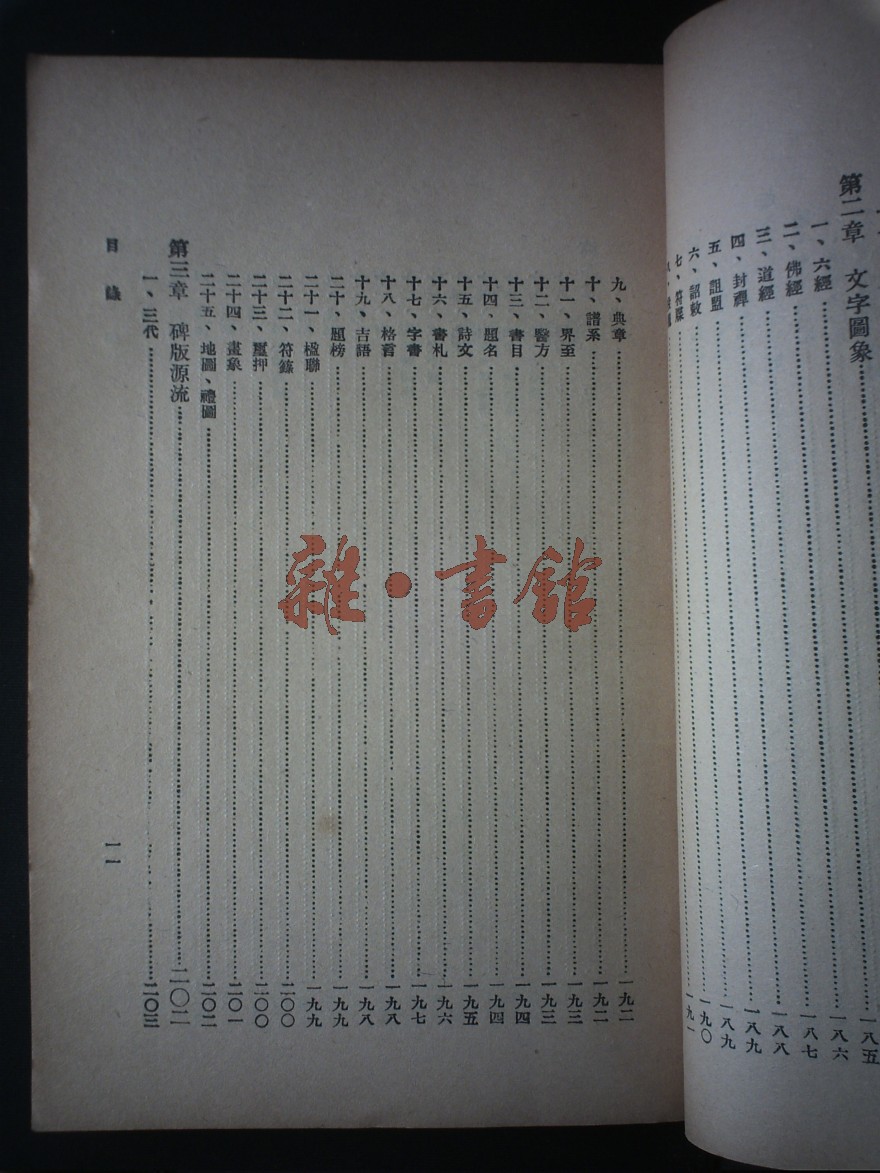 第二章 文字圖象……一八五
一、六經……一八六
二、佛經……一八七
三、道經……一八八
四、封禪……一八九
五、詛盟……一八九
六、詔敕……一九〇
七、符牒……一九一
九、典章……一九二
十、譜系……一九二
十一、界至……一九三
十二、醫方……一九三
十三、書目……一九四
十四、題名……一九四
十五、詩文……一九五
十六、書札……一九六
十七、字書……一九七
十八、格言……一九八
十九、吉語……一九八
二十、題榜……一九九
二十一、楹聯……一九九
二十二、符籙……二〇〇
二十三、璽押……二〇〇
二十四、畫象……二〇一
二十五、地圖、禮圖……二〇二
第三章 碑版源流……二〇二
一、三代……二〇三
目錄
一一
雜·書館